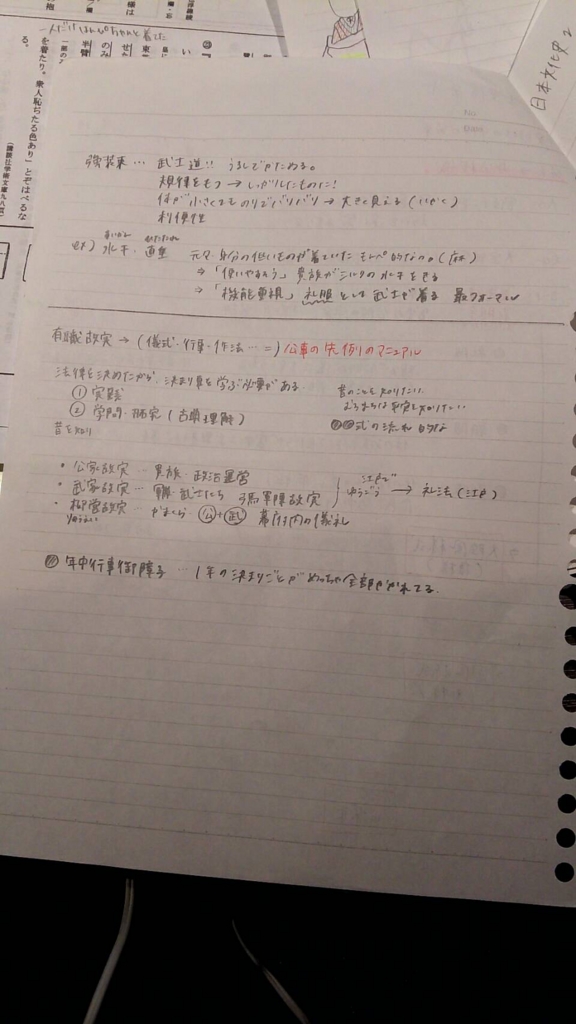 日本文化史2
一人だけはんぴちゃんと着た
を着たり。衆人恥ぢたる色あり」とぞはべるな
る。
(講談社学術文庫
強装束… 武士道!! うるしでかためる。
規律をもつ→しっかりしたものだ!
体が小さくてものりでバリバリ→大きく見える(いかく)
利便性
ex) 水干・直垂 元々身分の低いものが着ていた もんぺ的なもの。(麻)
⇒「使いやすそう」貴族がシルクの水干をきる
⇒「機能重視」礼服として武士が着る 最フォーマル
有職故実→(儀式・行事・作法…=)公事の先例のマニュアル
法律を決めたから、決まり事を学ぶ必要がある
① 実践
② 学問・研究(古典理解)
昔を知り
昔のことを知りたい
式の流れ的な
・公家故実… 貴族・政治運営
・武家故実… 武士たち 弓馬軍陣故実
・柳営故実… かまくら 公+武 幕府内の儀礼
りゅうえい
江戸で
ゆうごう → 礼法(江戸)
年中行事御障子… 1年の決まりごとがめっちゃ全部かかれてる。